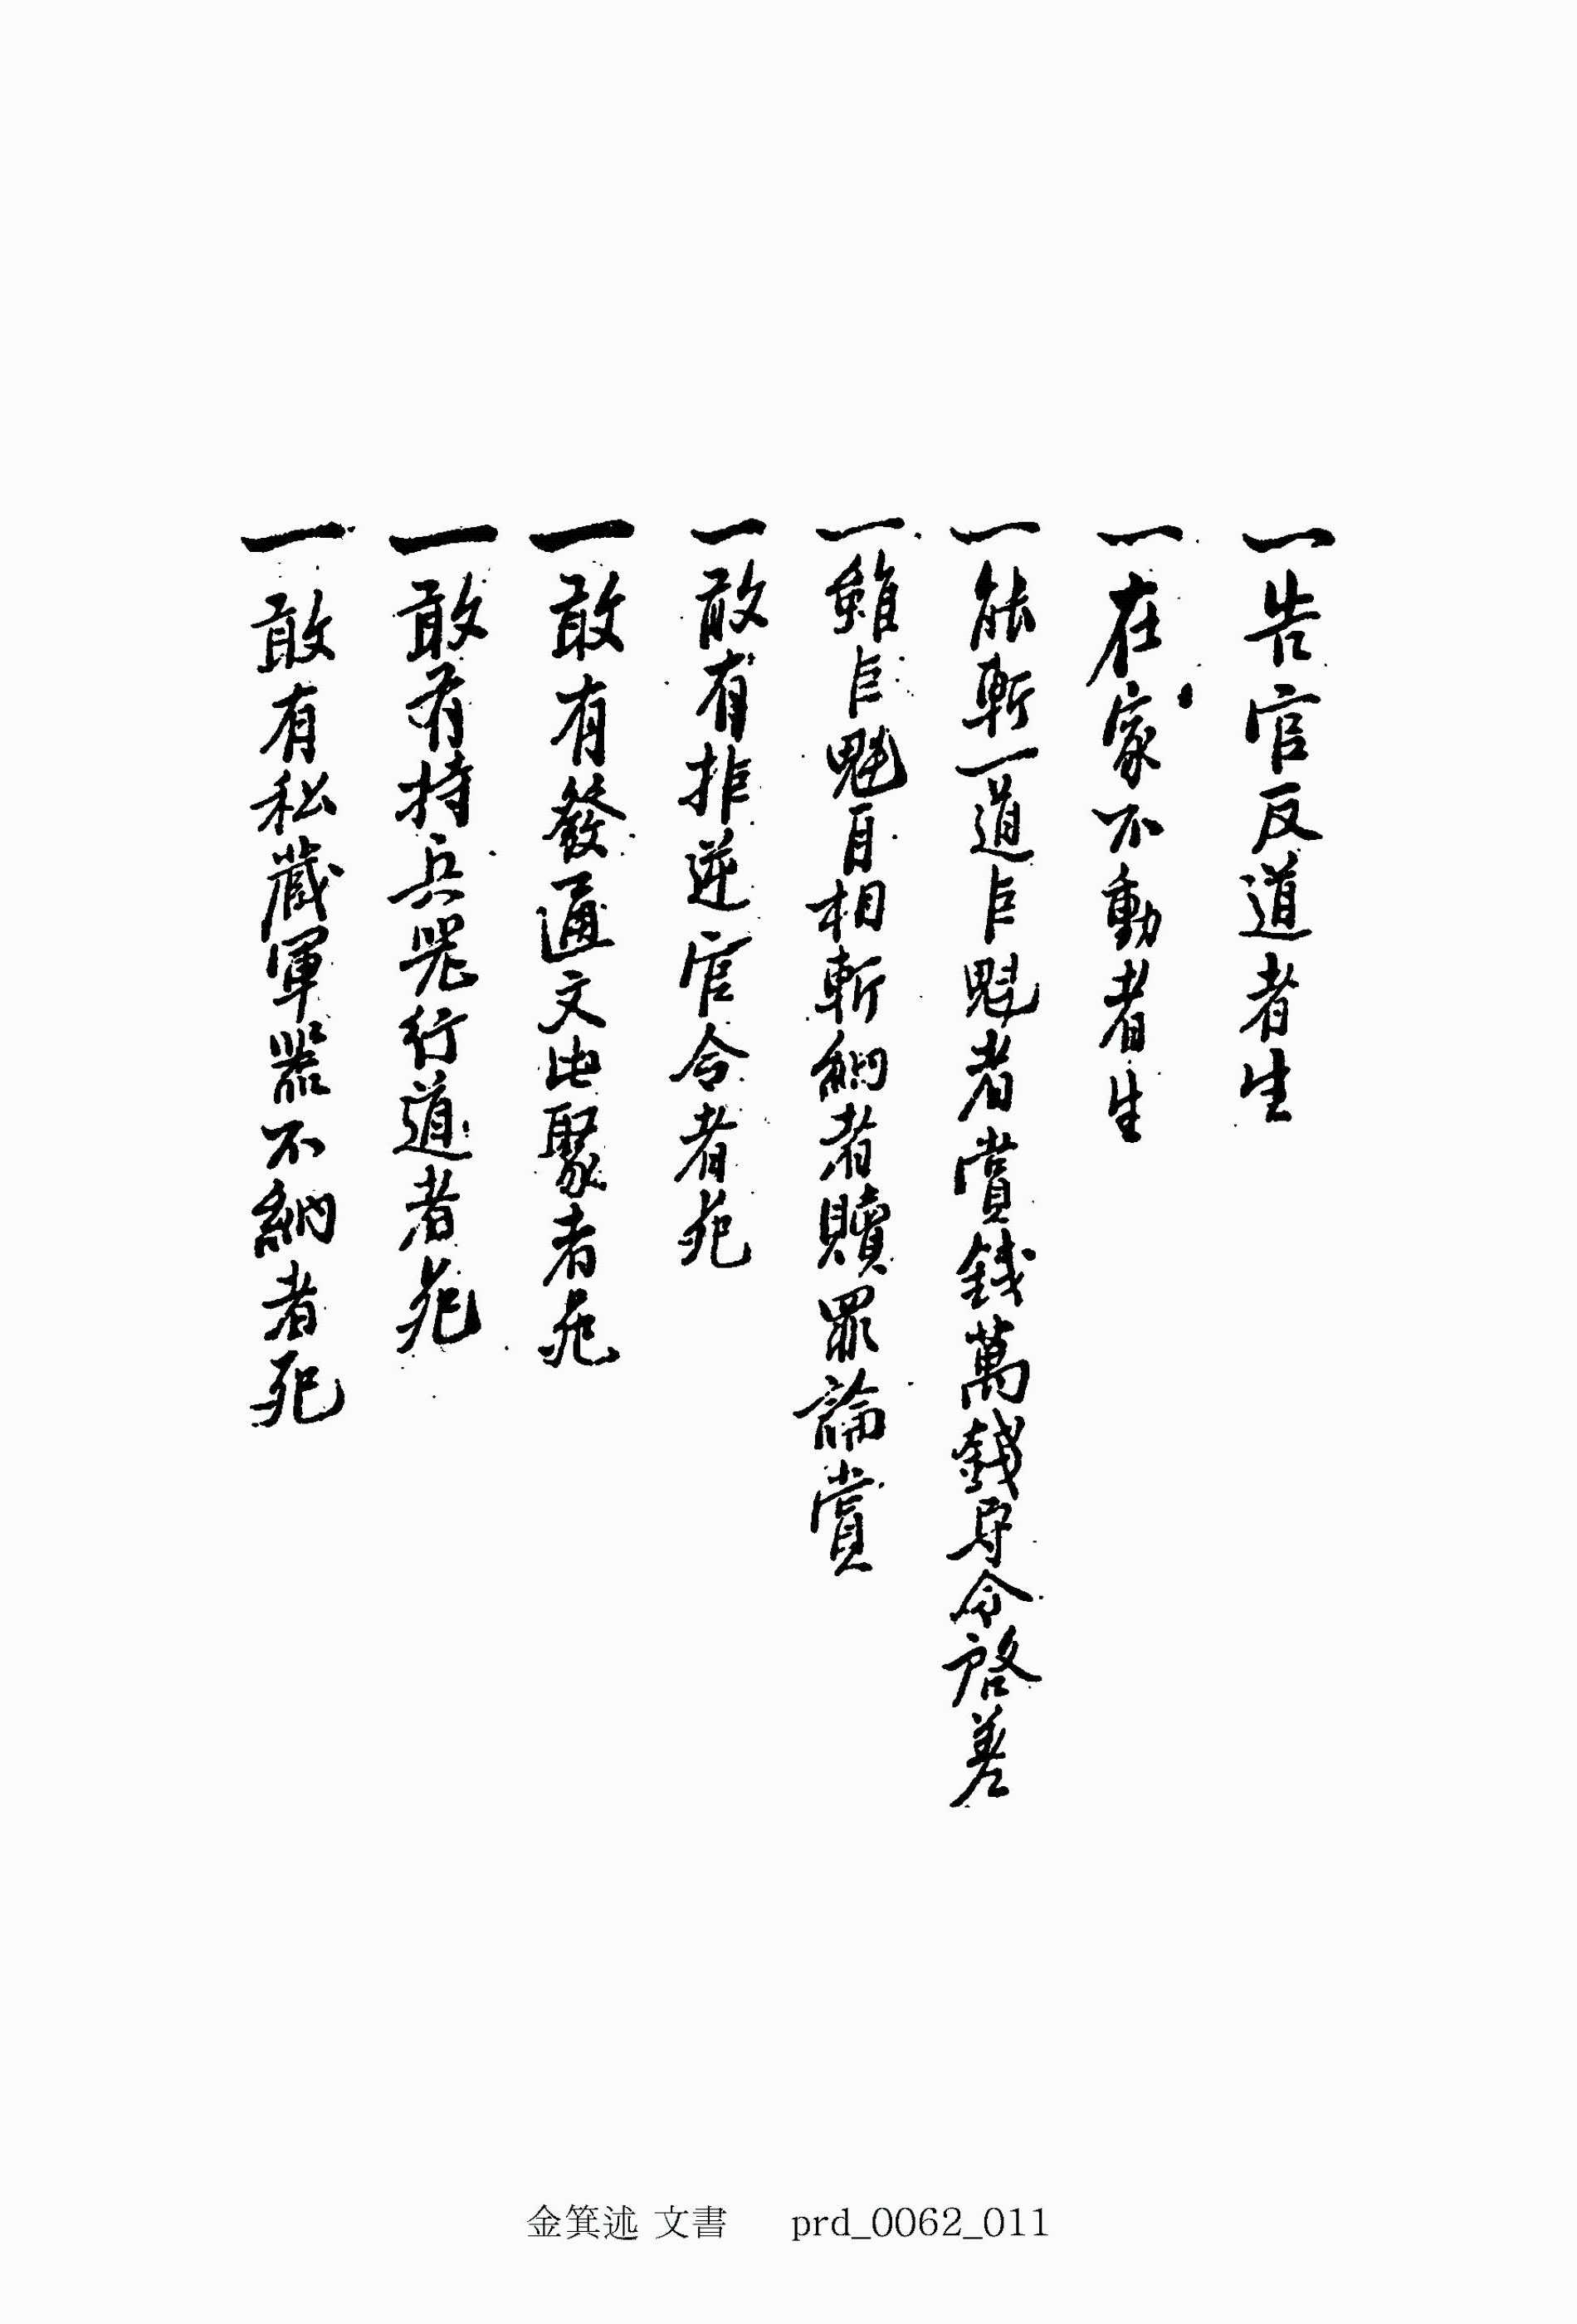 一告官反道者生
一在家不動者生
一能斬一道巨魁者賞錢萬錢 令啓差
一雖巨魁自相斬納者贖罪論賞
一敢有拒逆官令者死
一敢有發通文屯聚者死
一敢有持兵器行道者死
一敢有私藏軍器不納者死
金箕述 文書 prd_0062_011